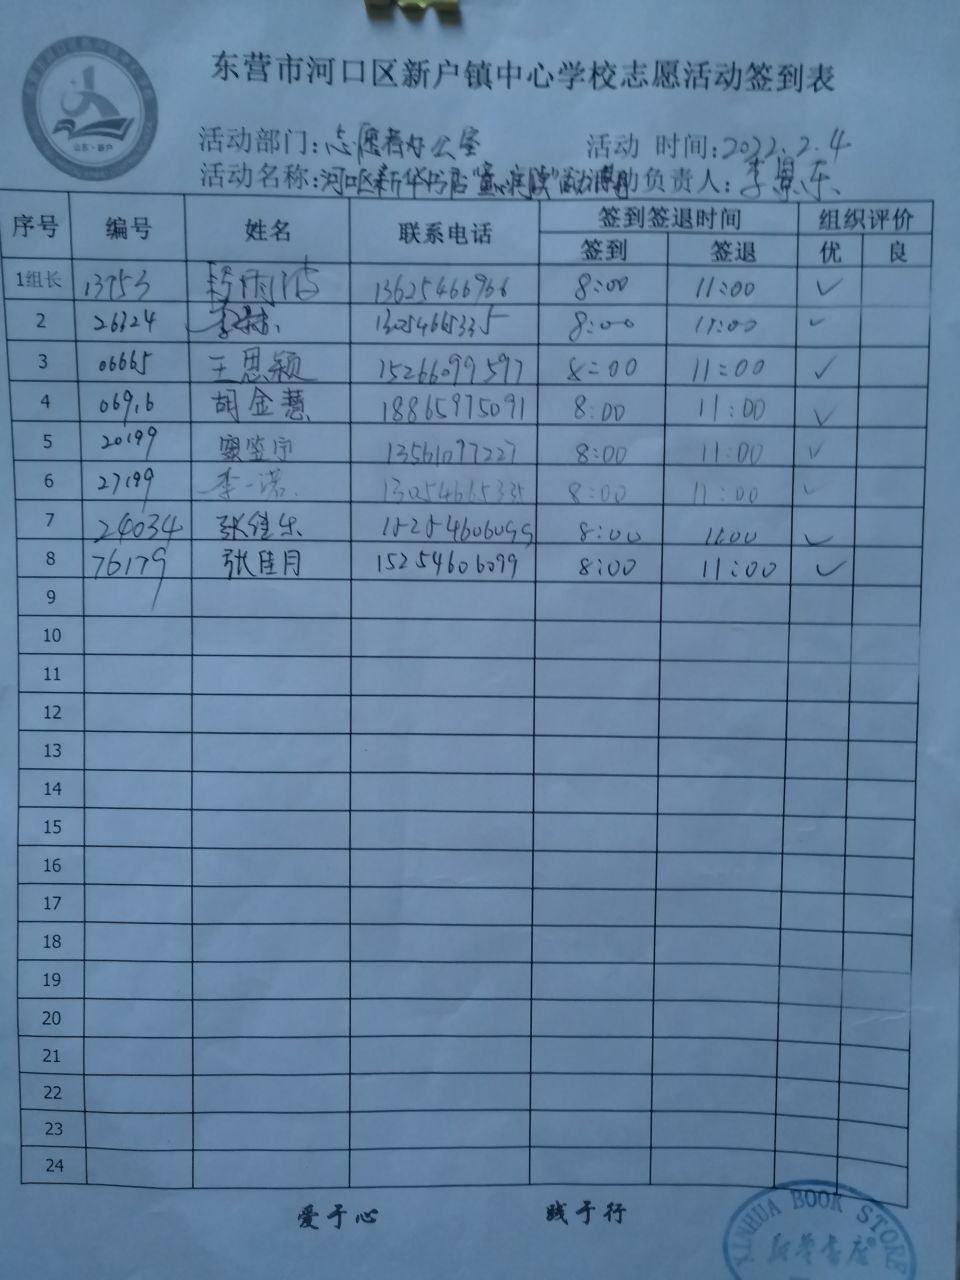 东营市河口区新户镇中心学校志愿活动签到表
山东·新户
活动部门:志愿者办公室 活动 时间:2022.2.4
活动名称:河口区新华书店"童心悦读" 负责人:李景东
序号 编号 姓名 联系电话 签到签退时间 组织评价
签到 签退 优 良
1组长 13753 13625466966 8:00 11:00 ✓
2 26324 13054665335 8:00 11:00 ✓
3 06665 王思颖 15266099597 8:00 11:00 ✓
4 06916 胡金慧 18865975091 8:00 11:00 ✓
5 20199 13561077227 8:00 11:00 ✓
6 27199 李一诺 13054665335 8:00 11:00 ✓
7 24034 张佳乐 15254606099 8:00 11:00 ✓
8 76179 张佳月 15254606099 8:00 11:00 ✓
9
10
11
12
13
14
15
16
17
18
19
20
21
22
23
24
爱于心 践于行
XINHUA BOOK STORE
新华书店